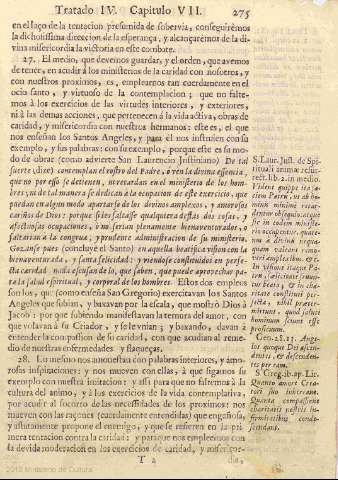 Tratado IV. Capitulo VII. 275
en el laço de la tentacion presumida de sobervia, conseguirémos
la dichosissima direccion de la esperança, y alcançarémos de la di-
vina misericordia la victoria en este combate.
27. El medio, que devemos guardar, y el orden, que avemos
de tener, en acudir á los ministerios de la caridad con nosotros, y
con nuestros proximos, es, emplearnos tan cuerdamente en el
ocio santo, y virtuoso de la contemplacion; que no falte-
mos à los exercicios de las virtudes interiores, y exteriores,
ni à las demas acciones, que pertenecen á la vida activa, obras de
caridad, y misericordia con nuestros hermanos: este es, el que
nos enseñan los Santos Angeles, y para èl nos instruien con su
exemplo, y sus palabras: con su exemplo, porque este es su mo-
do de obrar (como advierte San Laurencio Justiniano) De tal
suerte (dize) contemplan el rostro del Padre, ò ven la divina essencia,
que no por esso se detienen, ò retardan en el ministerio de los hom-
bres, ni de tal manera se dedican à la ocupacion de este exercicio, que
puedan en algun modo apartarse de los divinos amplexos, y amorosos
cariños de Dios: porque si les faltasse qualquiera destas dos cosas, y
afectuosas ocupaciones, ò no serian plenamente bienaventurados, ò
faltarian à la congrua, y prudente administracion de su ministerio.
Gozanse pues (concluye el Santo) en aquella beatifica vision con la
bienaventurada, y santa felicidad: y viendose constituidos en perfe-
cta caridad nada escusan de lo, que saben, que puede aprovechar pa-
ra la salud espiritual, y corporal de los hombres. Estos dos empleos
son los, que (como enseña San Gregorio) exercitavan los Santos
Angeles que subian, y baxavan por la escala, que mostrò Dios à
Jacob: por que subiendo manifestavan la ternura del amor, con
que volavan à su Criador, y se le vnian; y baxando, davan à
entender la compassion de su caridad, con que acudian al reme-
dio de nuestras enfermedades y flaquezas.
28. Lo mesmo nos amonestan con palabras interiores, y amo-
rosas inspiraciones: y nos mueven con ellas, à que sigamos su
exemplo con nuestra imitacion: y assi para que no faltemos à la
cultura del animo, y à los exercicios de la vida contemplativa,
por acudir al socorro de las necesidades de los proximos: nos
mueven con las raçones (cuerdamente entendidas) que engañosa,
y astutamente propone el enemigo, y que se refieren en la pri-
mera tentacion contra la caridad: y para que nos empleemos con
la devida moderacion en los exercicios de caridad, y misericor-
T 2 dia,
S. Laur. Just. de Spi-
rituali animæ resur-
rect. lib. 2. in medio.
Vident quippe ita fa-
ciem Patris, ut ab ho-
minum minime retar-
dentur obsequio: atque
sic in eodem ministe-
rio occupantur, quate-
nus à divinis nequa-
quam valeant remo-
veri amplexibus. &c.
In
Gen. 28. 12. Ange-
los quoque Dei ascen-
dentes, & descenden-
tes per eam.
S. Greg. ib. ap. Lir.
Quanto amore Crea-
tori suo inhæreant.
Quanta compassione
charitatis nostris in-
firmitatibus conde-
scendant.
2012 Ministerio de Cultura